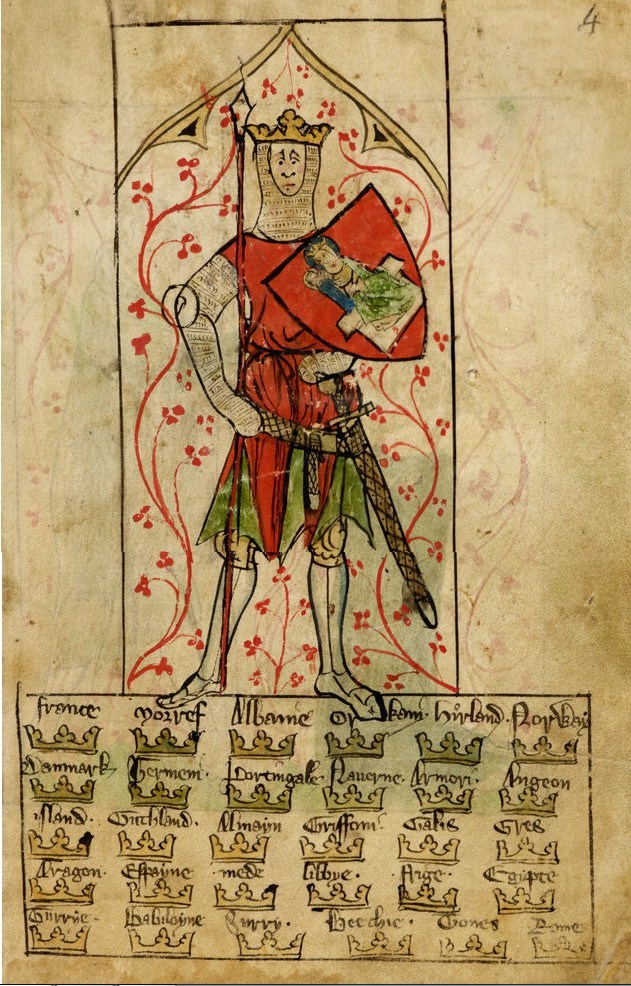 4
france Morref Albanie Orkani hirland Norway
Danmark Germeni Portingale Nauerne Armori Angeon
island Guthland Almayn Griffoni Galis Gres
Aragon Espayne mede libbye frige Egipte
Surrye Babiloyne